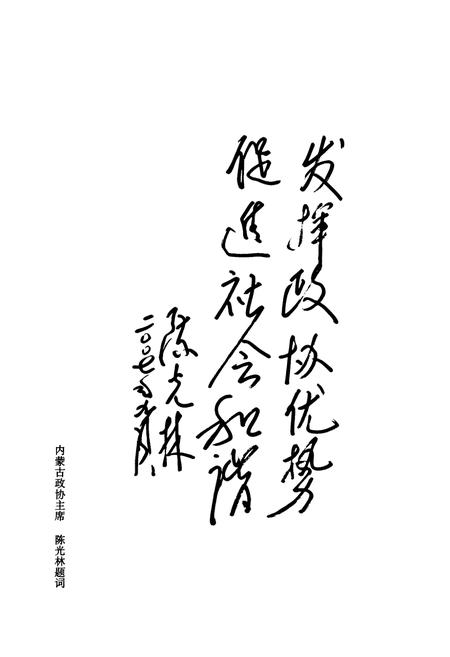 发挥政协优势
促進社会和谐
陈光林
二〇〇七年九月
内蒙古政协主席 陈光林题词